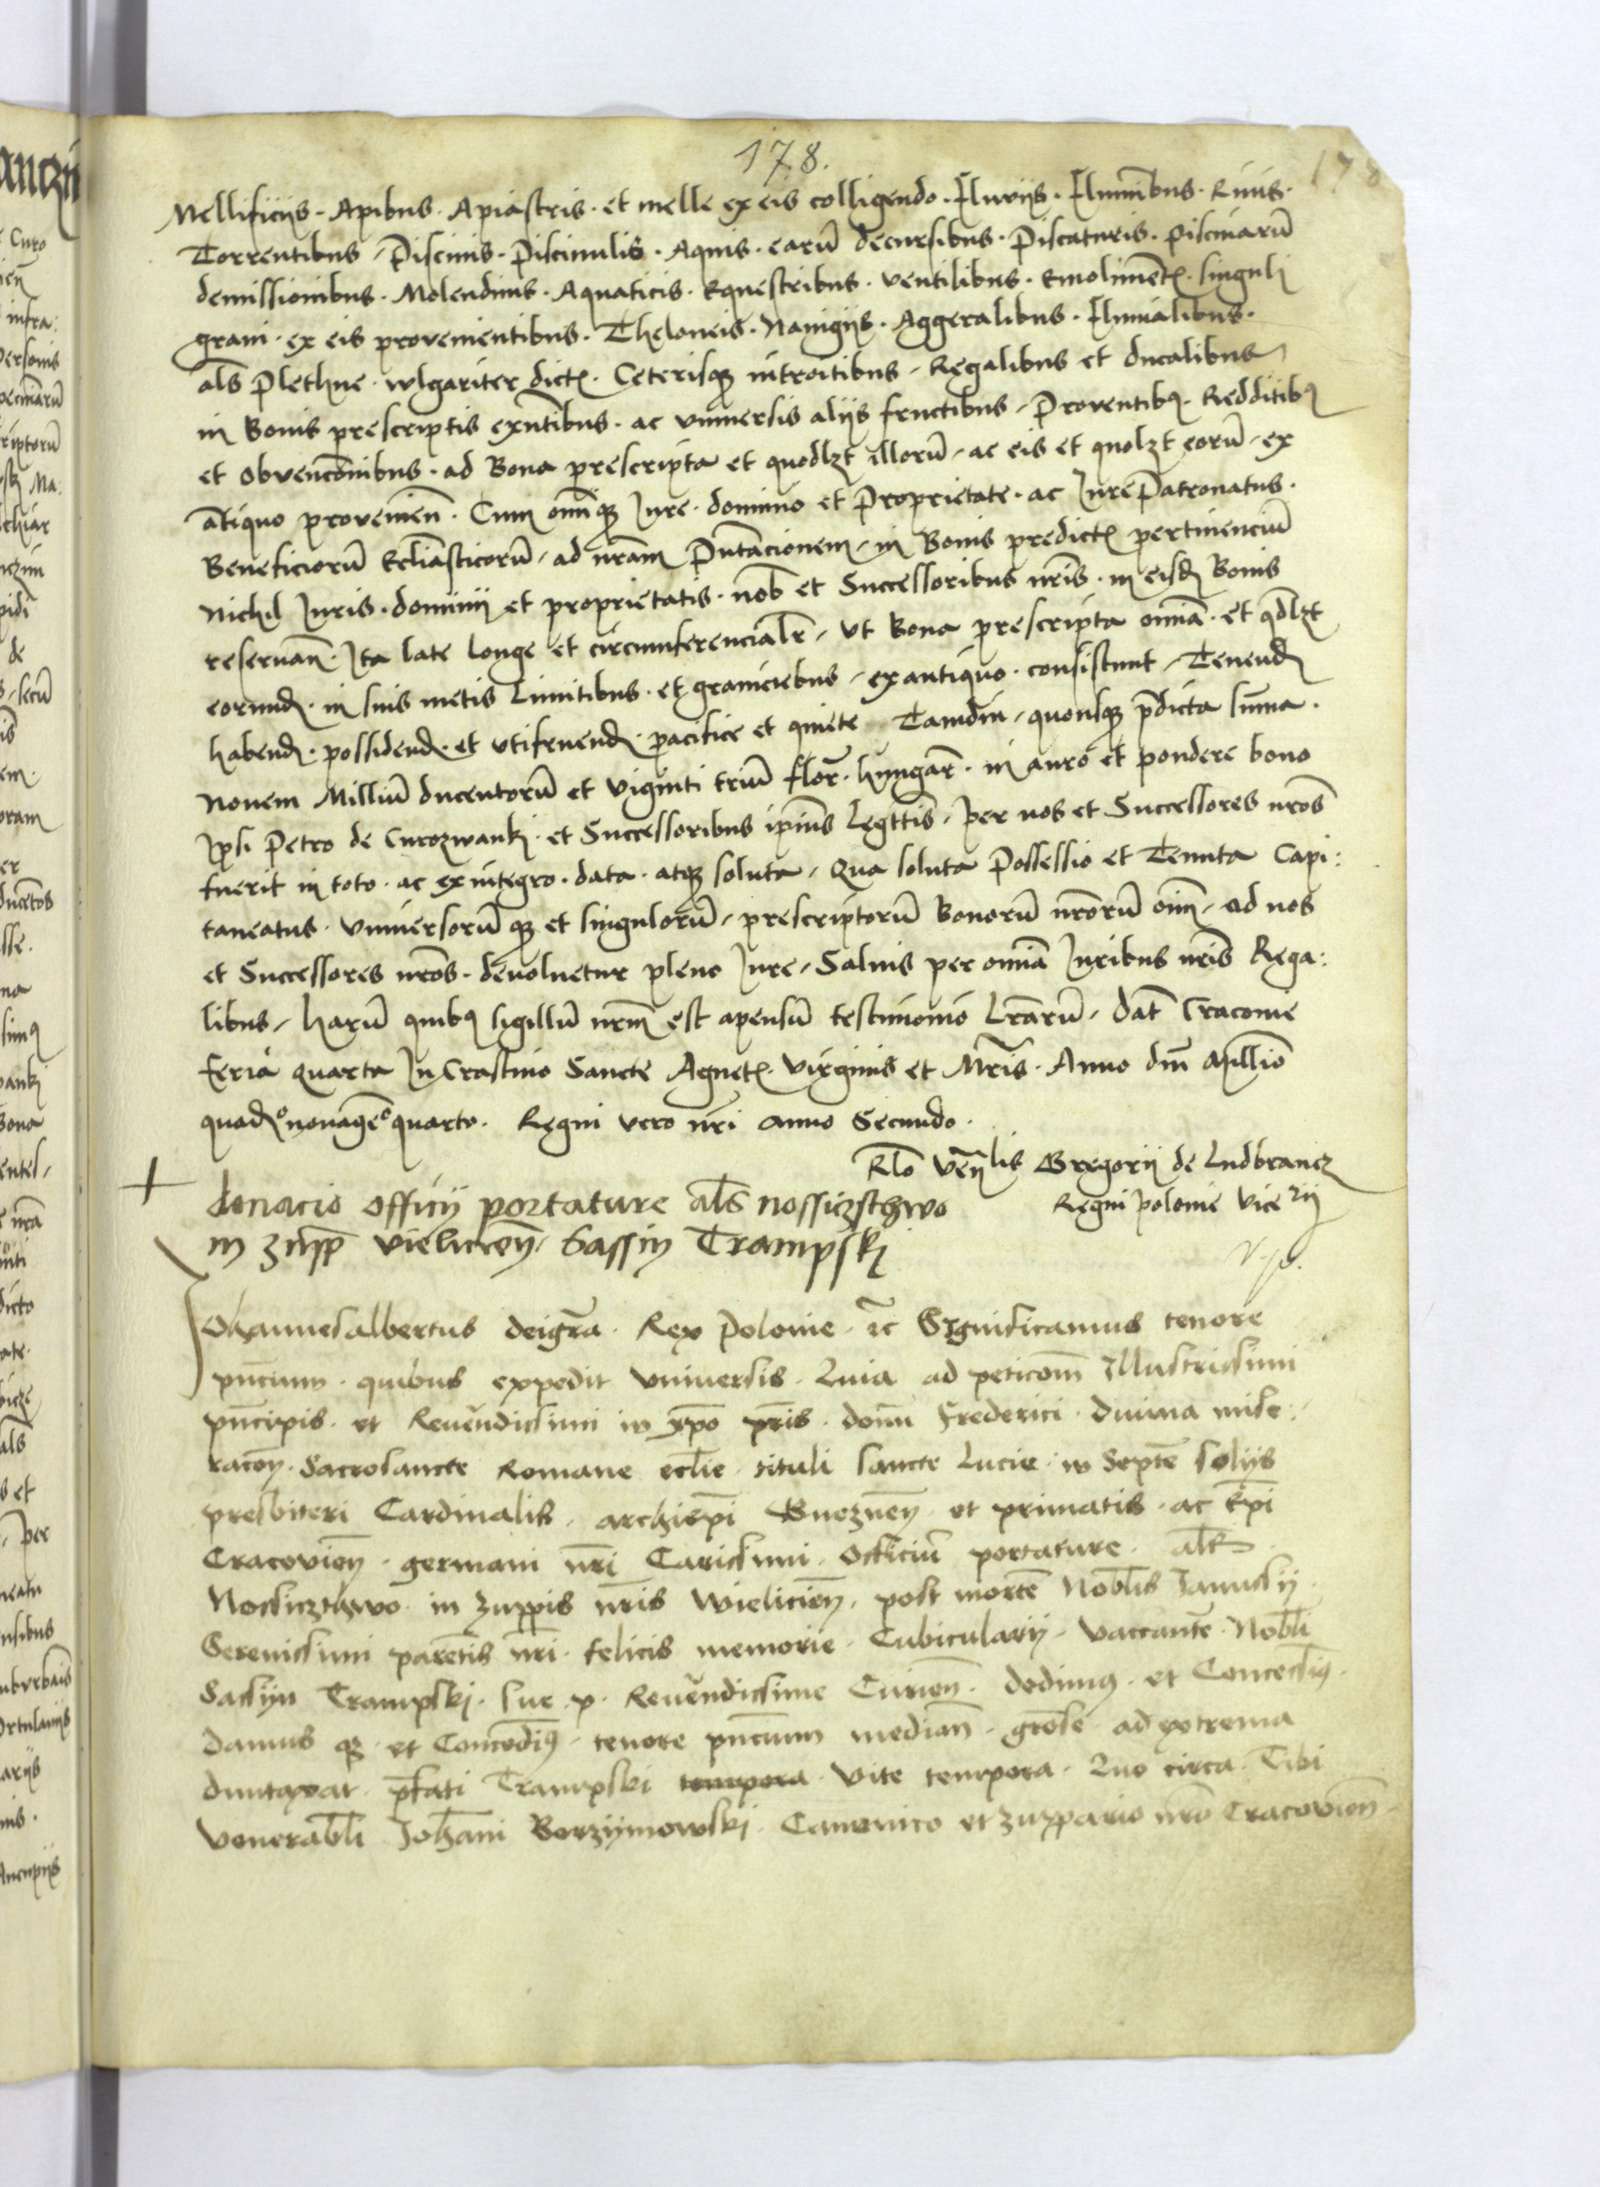 178.
178
Mellificiis · Apibus · Apiastris · et melle ex eis colligendo · Fluviis · Fluminibus · Rivis ·
Torrentibus / Piscinis · Piscinulis · Aquis · earū decursibus · Piscaturis · Piscinarū
demissionibus · Molendinis · Aquaticis · Equestribus · ventilibus · Emolimētꝭ · singuli
grani · ex eis provenientibus · Theloneis · Navigiis · Aggeralibus · Fluvialibus ·
als̄ Plethne · wlgariter dictꝭ · Ceterisqꝫ introitibus / Regalibus et ducalibus
in Bonis prescriptis exn̄tibus · ac universis aliis fructibus / Proventibꝰ · Redditibꝰ
et obvenc̄onibus · ad Bona prescripta et quodlꝫt illorū / ac eis et quolꝫt eorū / ex
antiquo provenien̄ · Cum om̄iqꝫ Jure · dominio et Proprietate · ac Jure Patronatus ·
Beneficiorū Eccliasticorū / ad nr̄am Pn̄tacionem / in Bonis predictꝭ pertinenciū
Nichil Juris · dominii et proprietatis · nob̄ et Successoribus nr̄is · in eisdꝫ Bonis
reservan̄ · Ita late longe et circumferencialr̄ / ut Bona prescripta om̄ia · et qd̄lꝫt
eorundꝫ · in suis metis limitibus · et graniciebus / ex antiquo · consistunt / Tenendꝫ
habendꝫ · possidendꝫ · et utifruendꝫ · pacifice et quiete Tamdiu / quousqꝫ p̄dicta sum̄a ·
Novem Milliū ducentorū et viginti triū flor̄ · hungar̄ · in auro et pondere bono
Ipsi Petro de Curozwanki · et Successoribus ip̄ius legtt̄is / per nos et Successores nr̄os
fuerit in toto · ac ex integro · data · atqꝫ soluta / Qua soluta Possessio et Tenuta Capi:
taneatus · universorū qꝫ et singulorū / prescriptorū Bonorū nr̄orū om̄i / ad nos
et Successores nr̄os · devolvetur pleno Jure / Salvis per om̄ia Juribus nr̄is Rega:
libus / harū quibꝰ sigillū nr̄m est apensū testimonio lr̄arū / dat̄ Cracovie
feria quarta In Crastino Sancte Agnetꝭ · virginis et Mr̄is · Anno dni Millīo
quadꝫº nonagēº quarto · Regni vero nr̄i anno Secundo ·
Rlo Ven̄lis Gregorii de Ludbrancz
Regni polonie Vice
donacio officij portature als̄ nossiczsthwo
in zupp̄ vieliciēn / Sassin Trampskj
Johannesalbertus deigr̄a · Rex Polonie · ꝛc Significamus tenore
pn̄cium · quibus expedit universis · Quia ad peticōm Illustrissimi
pn̄cipis · et Reverendissimi in xp̄o pr̄is · domī Frederici · Divina mise:
racōn · Sacrosancte Romane ecclie · tituli sancte Lucie · in Septē soliis
presbiteri Cardinalis · archiepī Gneznen̄ · et primatis · ac Epī
Cracovien̄ · germani nr̄i Carissimi · Officiū portature · als̄
Nossiczthwo · in zuppis nr̄is Wielicien̄ / post mortē Nob̄lis Janussij
Serenissimi parētis nr̄i · felicis memorie · Cubicularij · vaccantē · Nob̄li
Sassyn Trampski · sue p · Reverendissime Curien̄ · dedimꝰ · et Concessimꝰ ·
Damus qꝫ · et Concedimꝰ · tenore pn̄cium median̄ · grose · ad extrema
duntaxat · p̄fati Trampski tempora · vite tempora · Quo circa · Tibi
Venerab̄li Joh̄ani Borzijmowski · Canonico et zuppario nr̄o Cracovien̄ ·